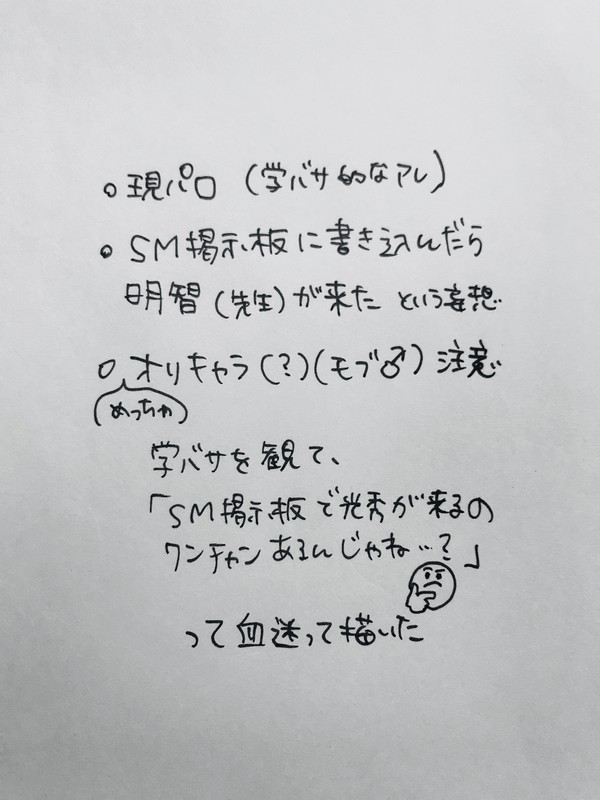 ○現パロ (学バサ的なアレ)
○SM掲示板に書き込んだら
明智(先生)が来た という妄想
○オリキャラ(?)(モブ♂)注意
(めっちゃ)
学バサを観て、
「SM掲示板で光秀が来るの
ワンチャンあるんじゃね…?」
って血迷って描いた